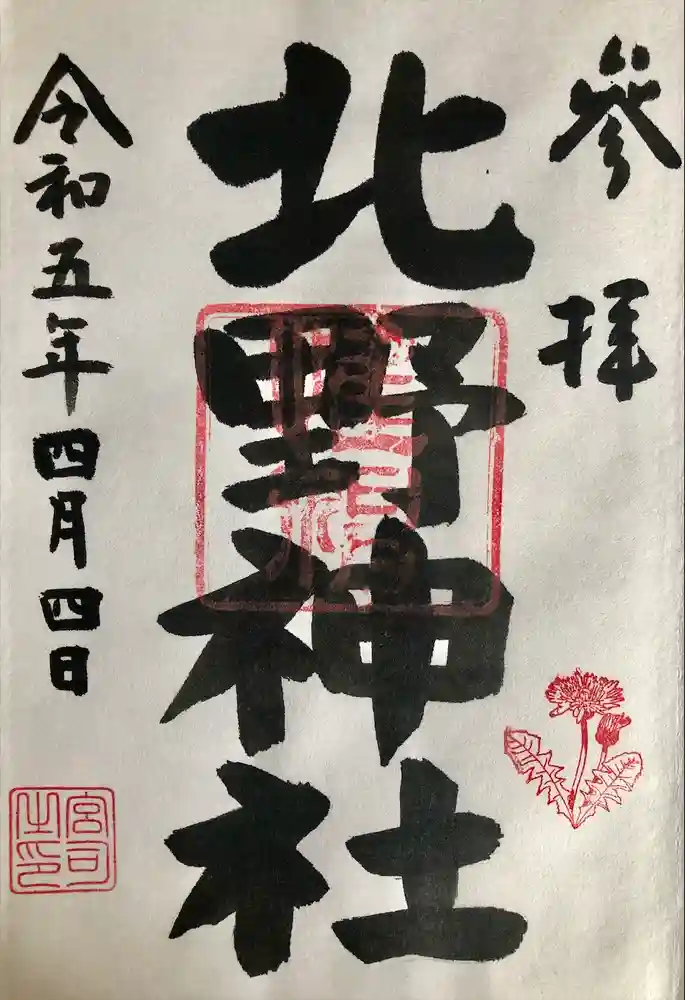 參拝
北野神社
令和五年四月四日
宮司之印